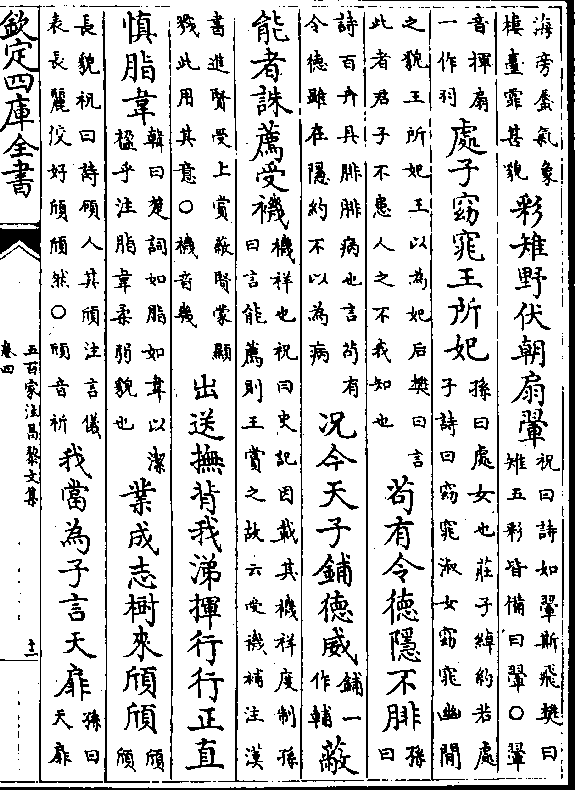 海旁蜃氣象樓臺霏甚貌彩雉野伏朝扇翬祝曰詩如翬斯飛樊曰雉五彩皆備曰翬〇翬
音揮扇一作羽處子窈窕王所妃孫曰處女也莊子綽約若處子詩曰窈窕淑女窈窕幽閒
之貌王所妃王以為妃后樊曰言此者君子不患人之不我知也苟有令德隱不腓孫曰
詩百卉丹腓腓病也言苟有令德雖在隱約不以為病况今天子鋪德威鋪一作輔蔽
能者誅薦受禨禨祥也祝曰史記因載其禨祥度制孫曰言能薦則王賞之故云受禨補注漢
書進賢受上賞蔽賢蒙顯戮此用其意〇禨音幾出送撫背我涕揮行行正直
慎脂韋韓曰楚詞如脂如韋以潔楹乎注脂韋柔弱貌也業成志樹來頎頎頎頎
長貌祝曰詩碩人其頎注言儀表長麗佼好頎頎然〇頎音祈我當為子言天扉孫曰天扉
欽定四庫全書
五百家注昌黎文集
卷四
十二